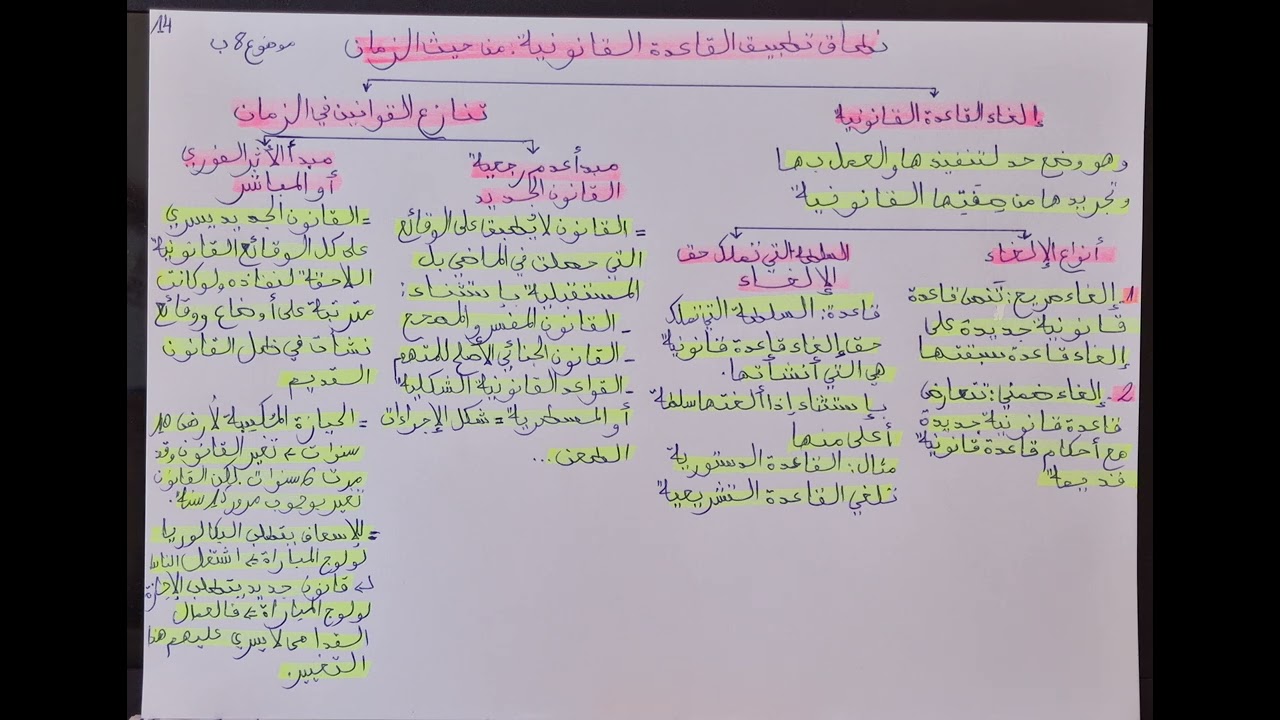 14
موضوع 8 ب
نطاق تطبيق القاعدة القانونية: من حيث الزمان
إلغاء القاعدة القانونية
وهو وضع حد لتنفيذها والعمل بها
وتجريدها من صفتها القانونية
أنواع الإلغاء
1- إلغاء صريح: تنص قاعدة
قانونية جديدة على
إلغاء قاعدة سبقتها
2- إلغاء ضمني: تتعارض
قاعدة قانونية جديدة
مع أحكام قاعدة قانونية
قديمة
السلطة التي تملك حق
الإلغاء
قاعدة: السلطة التي تملك
حق إلغاء قاعدة قانونية
هي التي أنشأتها.
بإستثناء إذا ألغتها سلطة
أعلى منها
مثال: القاعدة الدستورية
تلغي القاعدة التشريعية
تنازع القوانين في الزمان
مبدأ عدم رجعية
القانون الجديد
= القانون لا تطبق على الوقائع
التي حصلت في الماضي بل
المستقبلية بإستثناء:
- القانون المفسر والمصحح
- القانون الجنائي الأصلح للمتهم
- القواعد القانونية الشكلية
أو المسطرية = شكل الإجراءات
الطعن...
مبدأ الأثر الفوري
أو المباشر
= القانون الجديد يسري
على كل الوقائع القانونية
اللاحقة لنفاذه ولو كانت
مترتبة على أوضاع ووقائع
نشأت في ظل القانون
القديم
= الحيازة المكسبة لأرض 10
سنوات ← تغير القانون وقد
مرت 6 سنوات. لكن القانون
تغير بوجوب مرور سنة.
= الإسعاف يتطلب البكالوريا
لولوج المباراة ← اشتغل الناس
← قانون جديد يتطلب الإجازة
لولوج المباراة ← فالعمال
القدامى لا يسري عليهم هذا
التغيير.